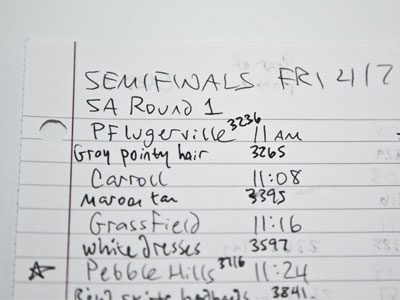 SEMIFINALS FRI 4/7
5A Round 1
Pflugerville 3236 11 AM
Gray pointy hair 3265
Carroll 11:08
maroon tan 3395
Grassfield 11:16
white dresses 3597
Pebble Hills 3716 11:24
3841